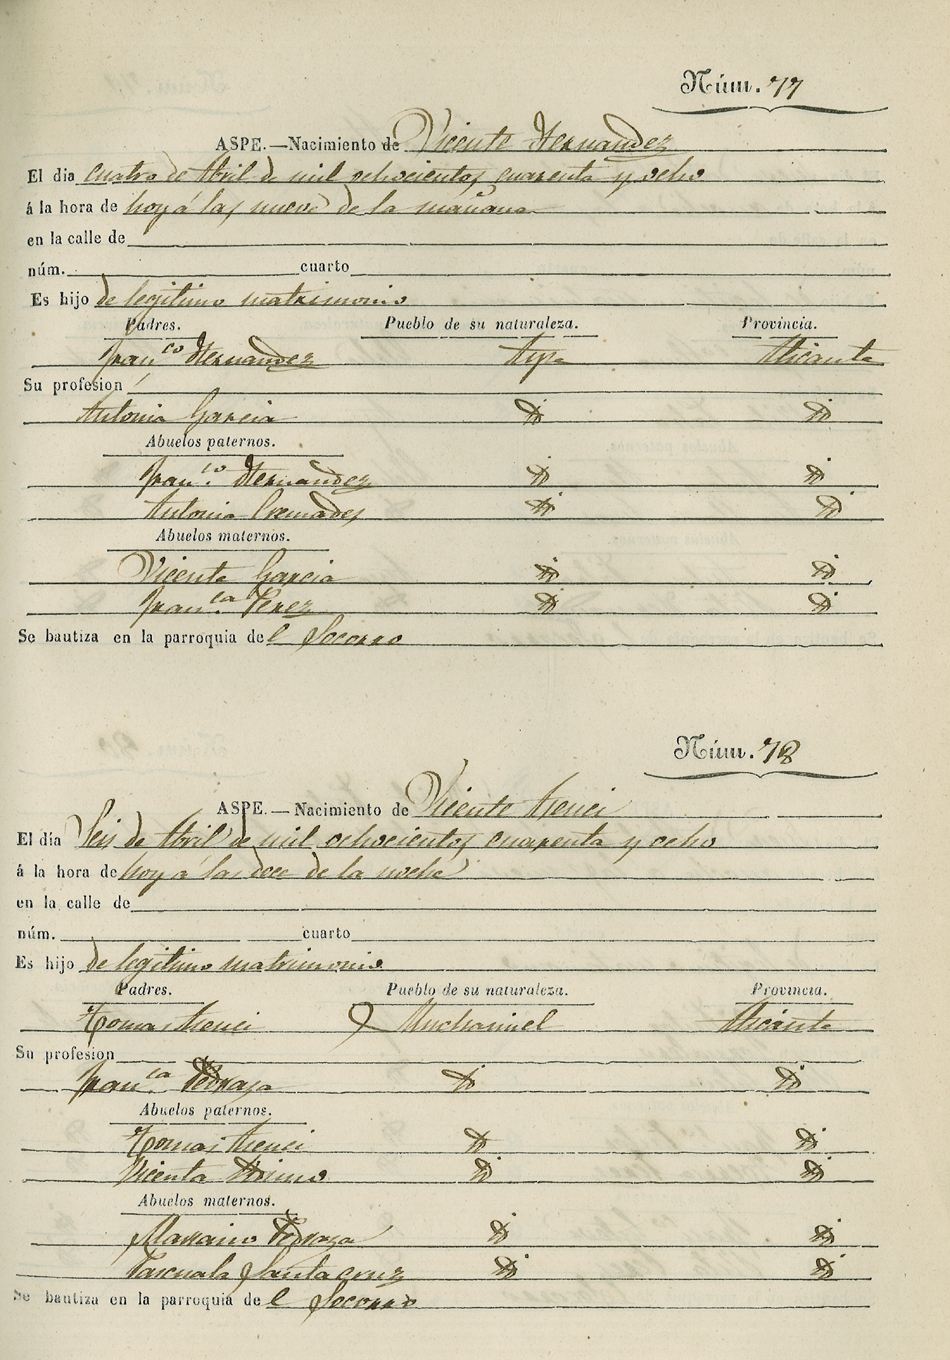 Núm. 77
ASPE.—Nacimiento de Vicente Hernandez
El día cuatro de Abril de mil ochocientos cuarenta y ocho
á la hora de hoy á las nueve de la mañana
en la calle de
núm. cuarto
Es hijo de legitimo matrimonio
Padres. Pueblo de su naturaleza. Provincia.
Fran.co Hernandez Aspe Alicante
Su profesion
Antonia Garcia
Abuelos paternos.
Fran.co Hernandez
Antonia Cremades
Abuelos maternos.
Vicente Garcia
Fran.ca Perez
Se bautiza en la parroquia del Socorro
Núm. 78
ASPE.—Nacimiento de Vicente
El día Seis de Abril de mil ochocientos cuarenta y ocho
á la hora de hoy á las doce de la noche
en la calle de
núm. cuarto
Es hijo de legitimo matrimonio
Padres. Pueblo de su naturaleza. Provincia.
Tomas Muchamiel Alicante
Su profesion
Fran.ca Pedraza
Abuelos paternos.
Tomas
Vicenta
Abuelos maternos.
Mariano Pedraza
Pascuala Santacruz
Se bautiza en la parroquia del Socorro